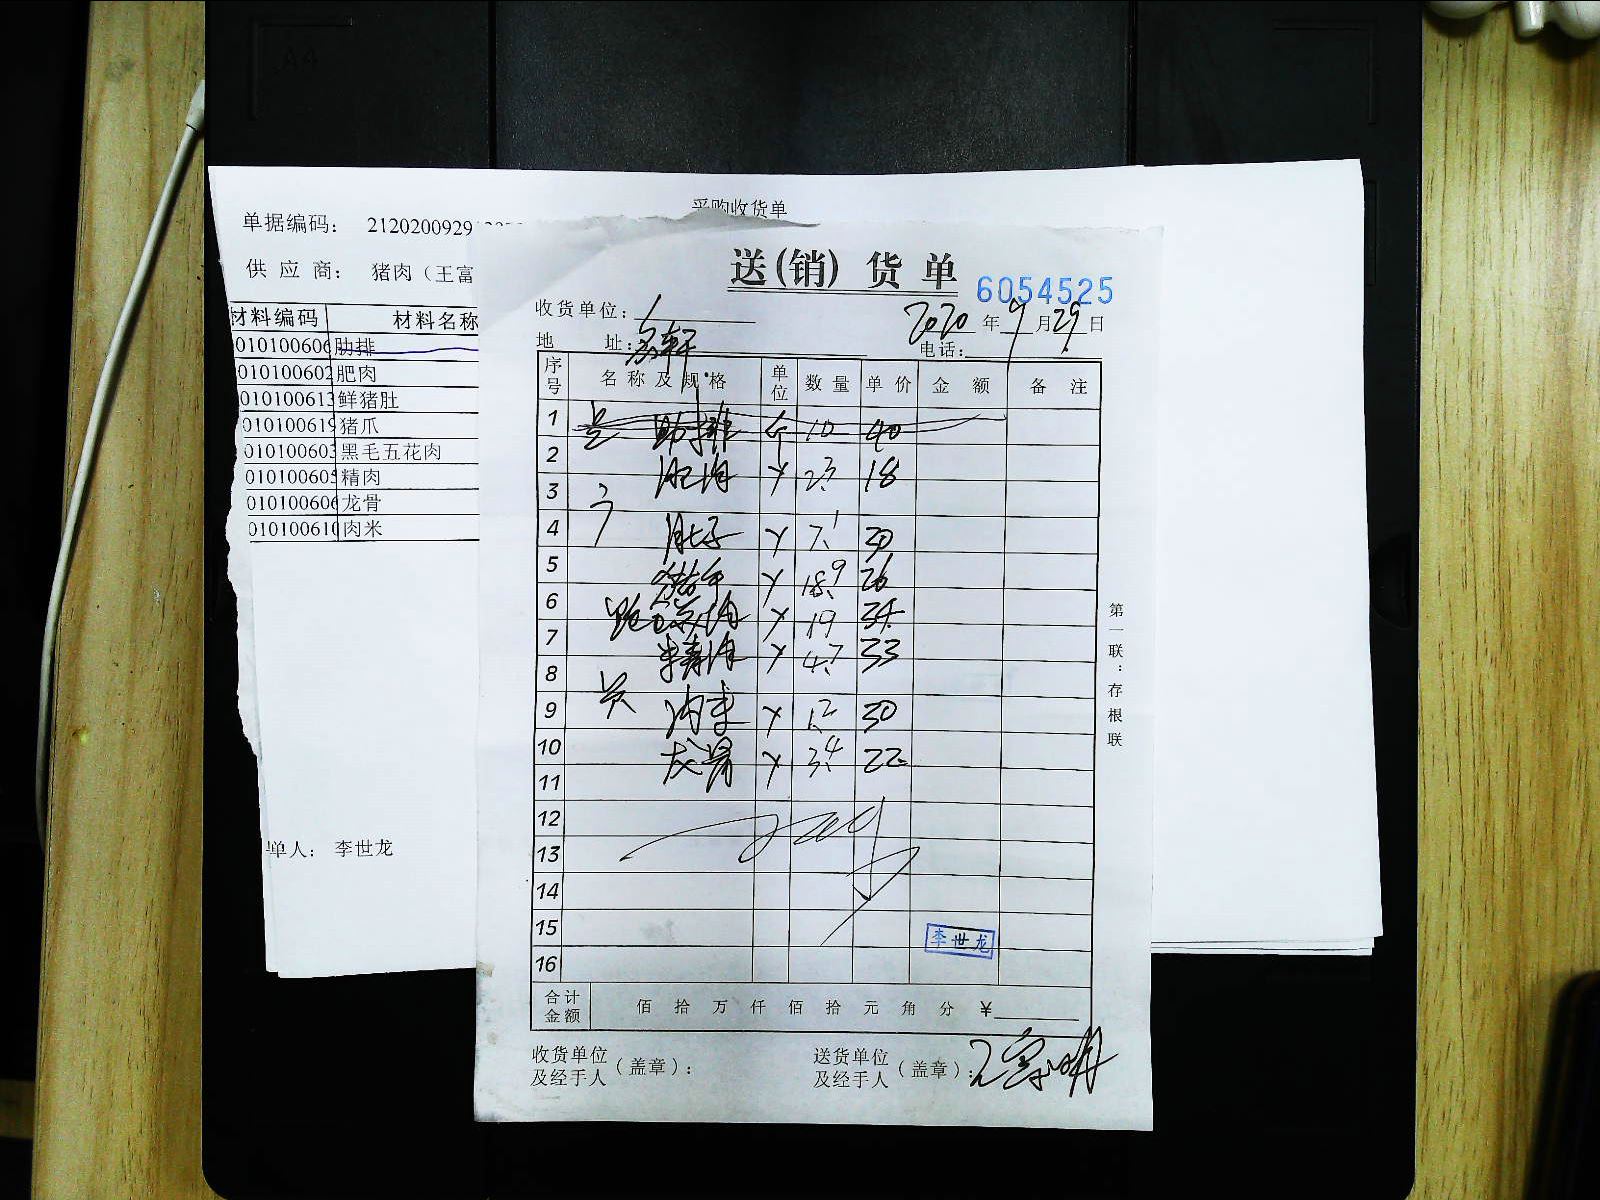 采购收货单
单据编码： 212020092913
供 应 商： 猪肉（王富
材料编码 材料名称
010100606 肋排
010100602 肥肉
010100613 鲜猪肚
010100619 猪爪
010100603 黑毛五花肉
010100605 精肉
010100606 龙骨
010100610 肉米
单人： 李世龙
送(销) 货 单
6054525
收货单位：
2020 年 9 月 29 日
地 址： 轩
电话：
序号 名 称 及 规 格 单位 数 量 单 价 金 额 备 注
1 肋排 个 10 40
2 肥肉 23 18
3
4 肚子 7.1 30
5 猪手 18.9 26
6 19 34
7 精肉 4.7 33
8
9 肉米 1.2 30
10 龙骨 3.4 22
11
12
13
14
15 李世龙
16
合计金额 佰 拾 万 仟 佰 拾 元 角 分 ¥
收货单位及经手人（盖章）：
送货单位及经手人（盖章）： 王富明
第一联：存根联